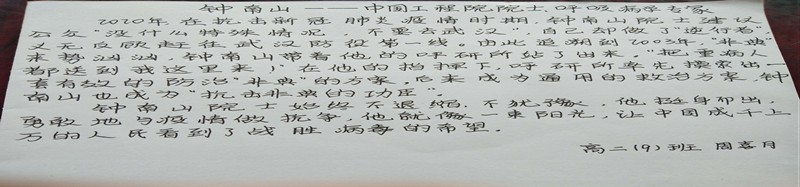 钟南山——中国工程院院士,呼吸病学专家
2020年在抗击新冠肺炎疫情时期,钟南山院士建议
公众"没什么特殊情况,不要去武汉",自己却做了"逆行者",
义无反顾赶往武汉防役第一线。由此追溯到2003年,"非典"
来势汹汹,钟南山带着他的呼研所站了出来,"把重病人
都送到我这里来",在他的指挥下,呼研所率先摸索出一
套有效的防治"非典"的方案,后来成为通用的救治方案,钟
南山也成为"抗击非典的功臣"。
钟南山院士始终不退缩,不犹豫,他挺身而出,
勇敢地与疫情做抗争,他就像一束阳光,让中国成千上
万的人民看到了战胜病毒的希望。
高二(9)班 周喜月